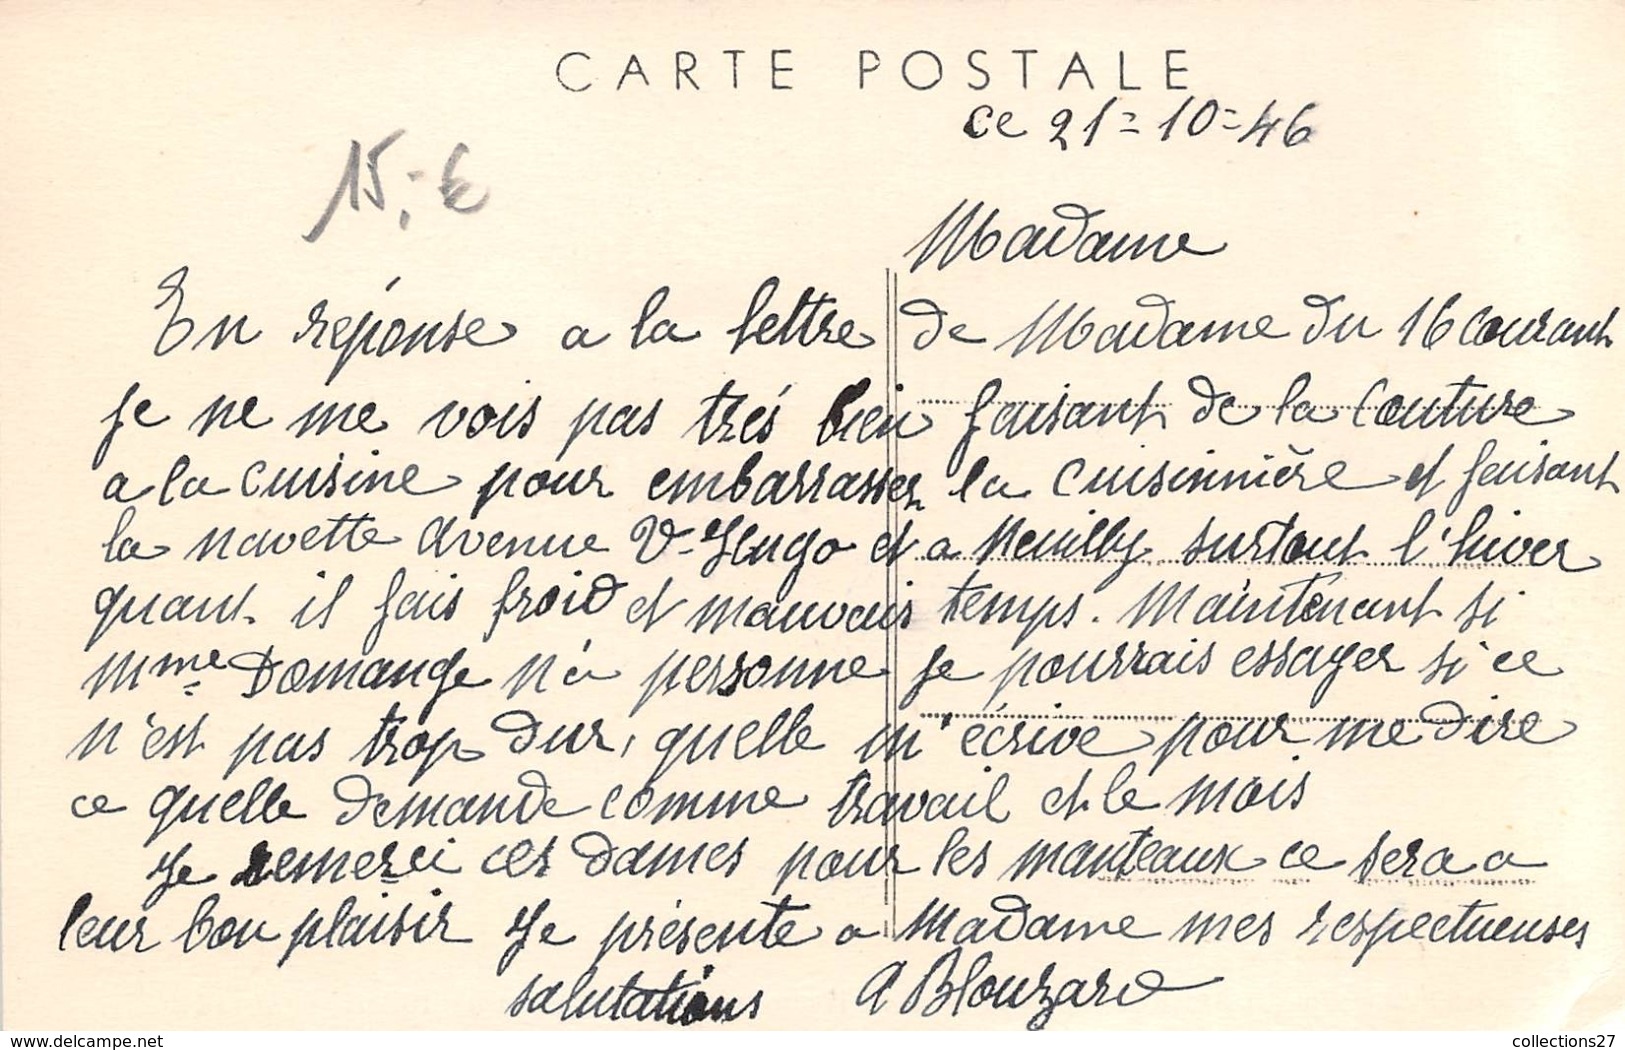 CARTE POSTALE
ce 21=10=46
15,-€
Madame
En réponse a la lettre de Madame du 16 courant
Je ne me vois pas trés bien faisant de la couture
a la cuisine pour embarrasser la cuisinnière et faisant
la navette Avenue V-Hugo et a Neuilly surtout l'hiver
quant il fais froid et mauvais temps. Maintenant si
Mme Domange n'a personne Je pourrais essayer si ce
n'est pas trop dur, quelle m'écrive pour me dire
ce quelle demande comme travail et le mois
Je remerci ces dames pour les manteaux ce sera a
leur bon plaisir Je présente a Madame mes respectueuses
salutations A Blouzard
delcampe.net
collections27